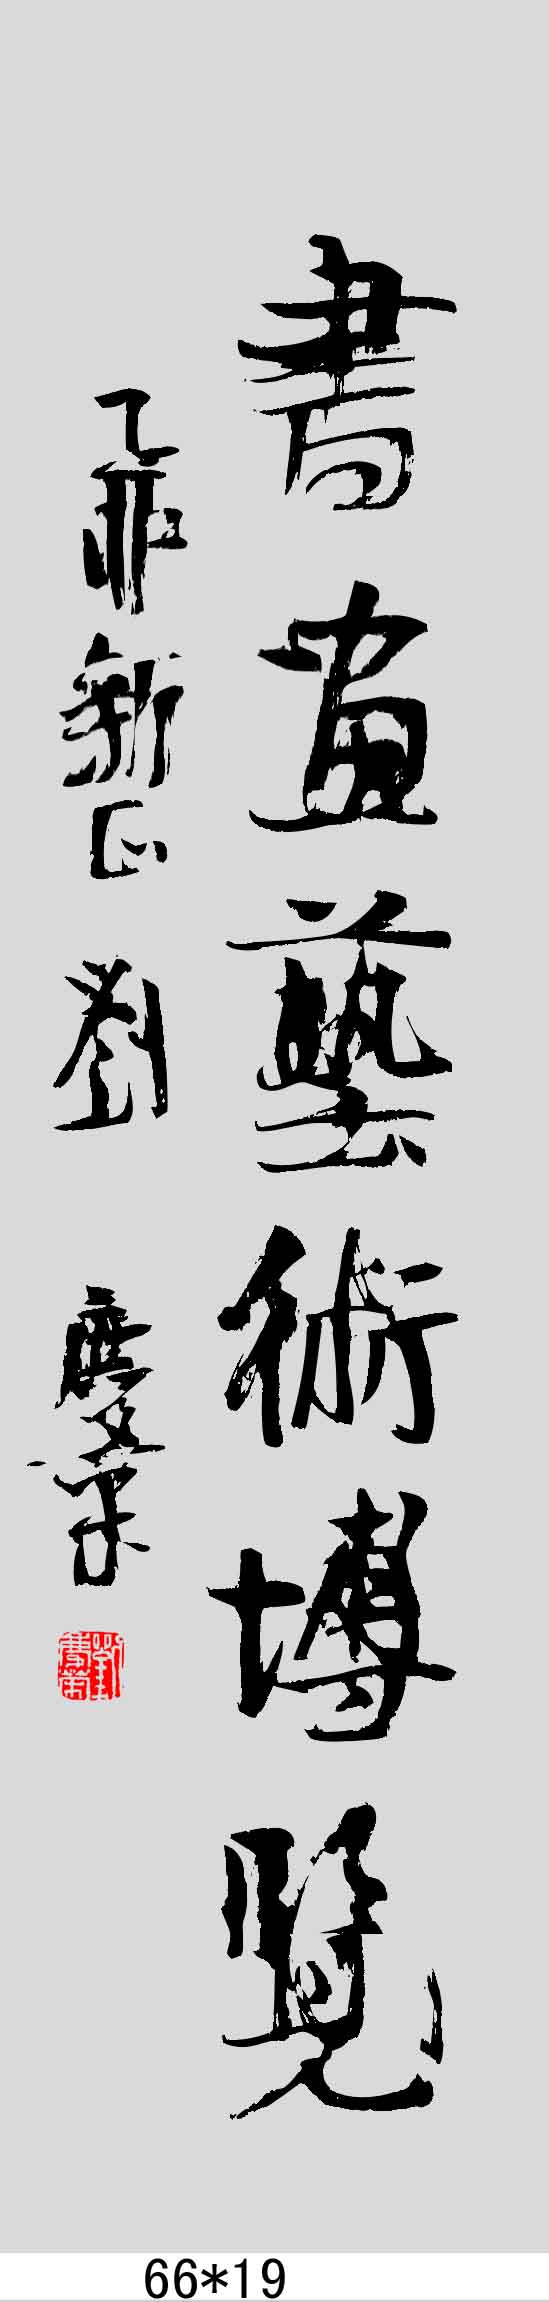 書畫藝術博覽
乙酉新正 劉慶榮
66*19